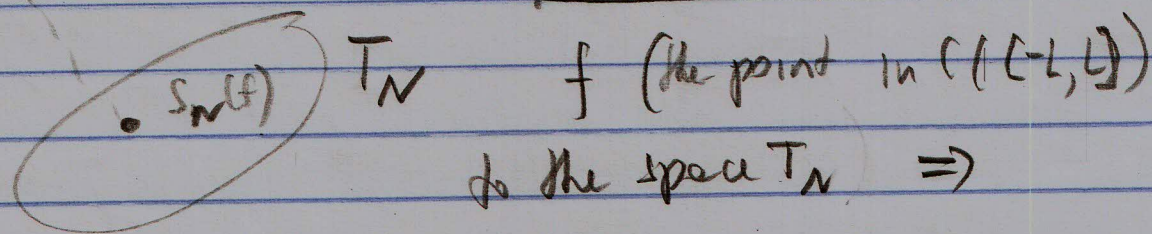 • S_N(f) T_N f (the point in C([-L, L])
to the space T_N ⇒